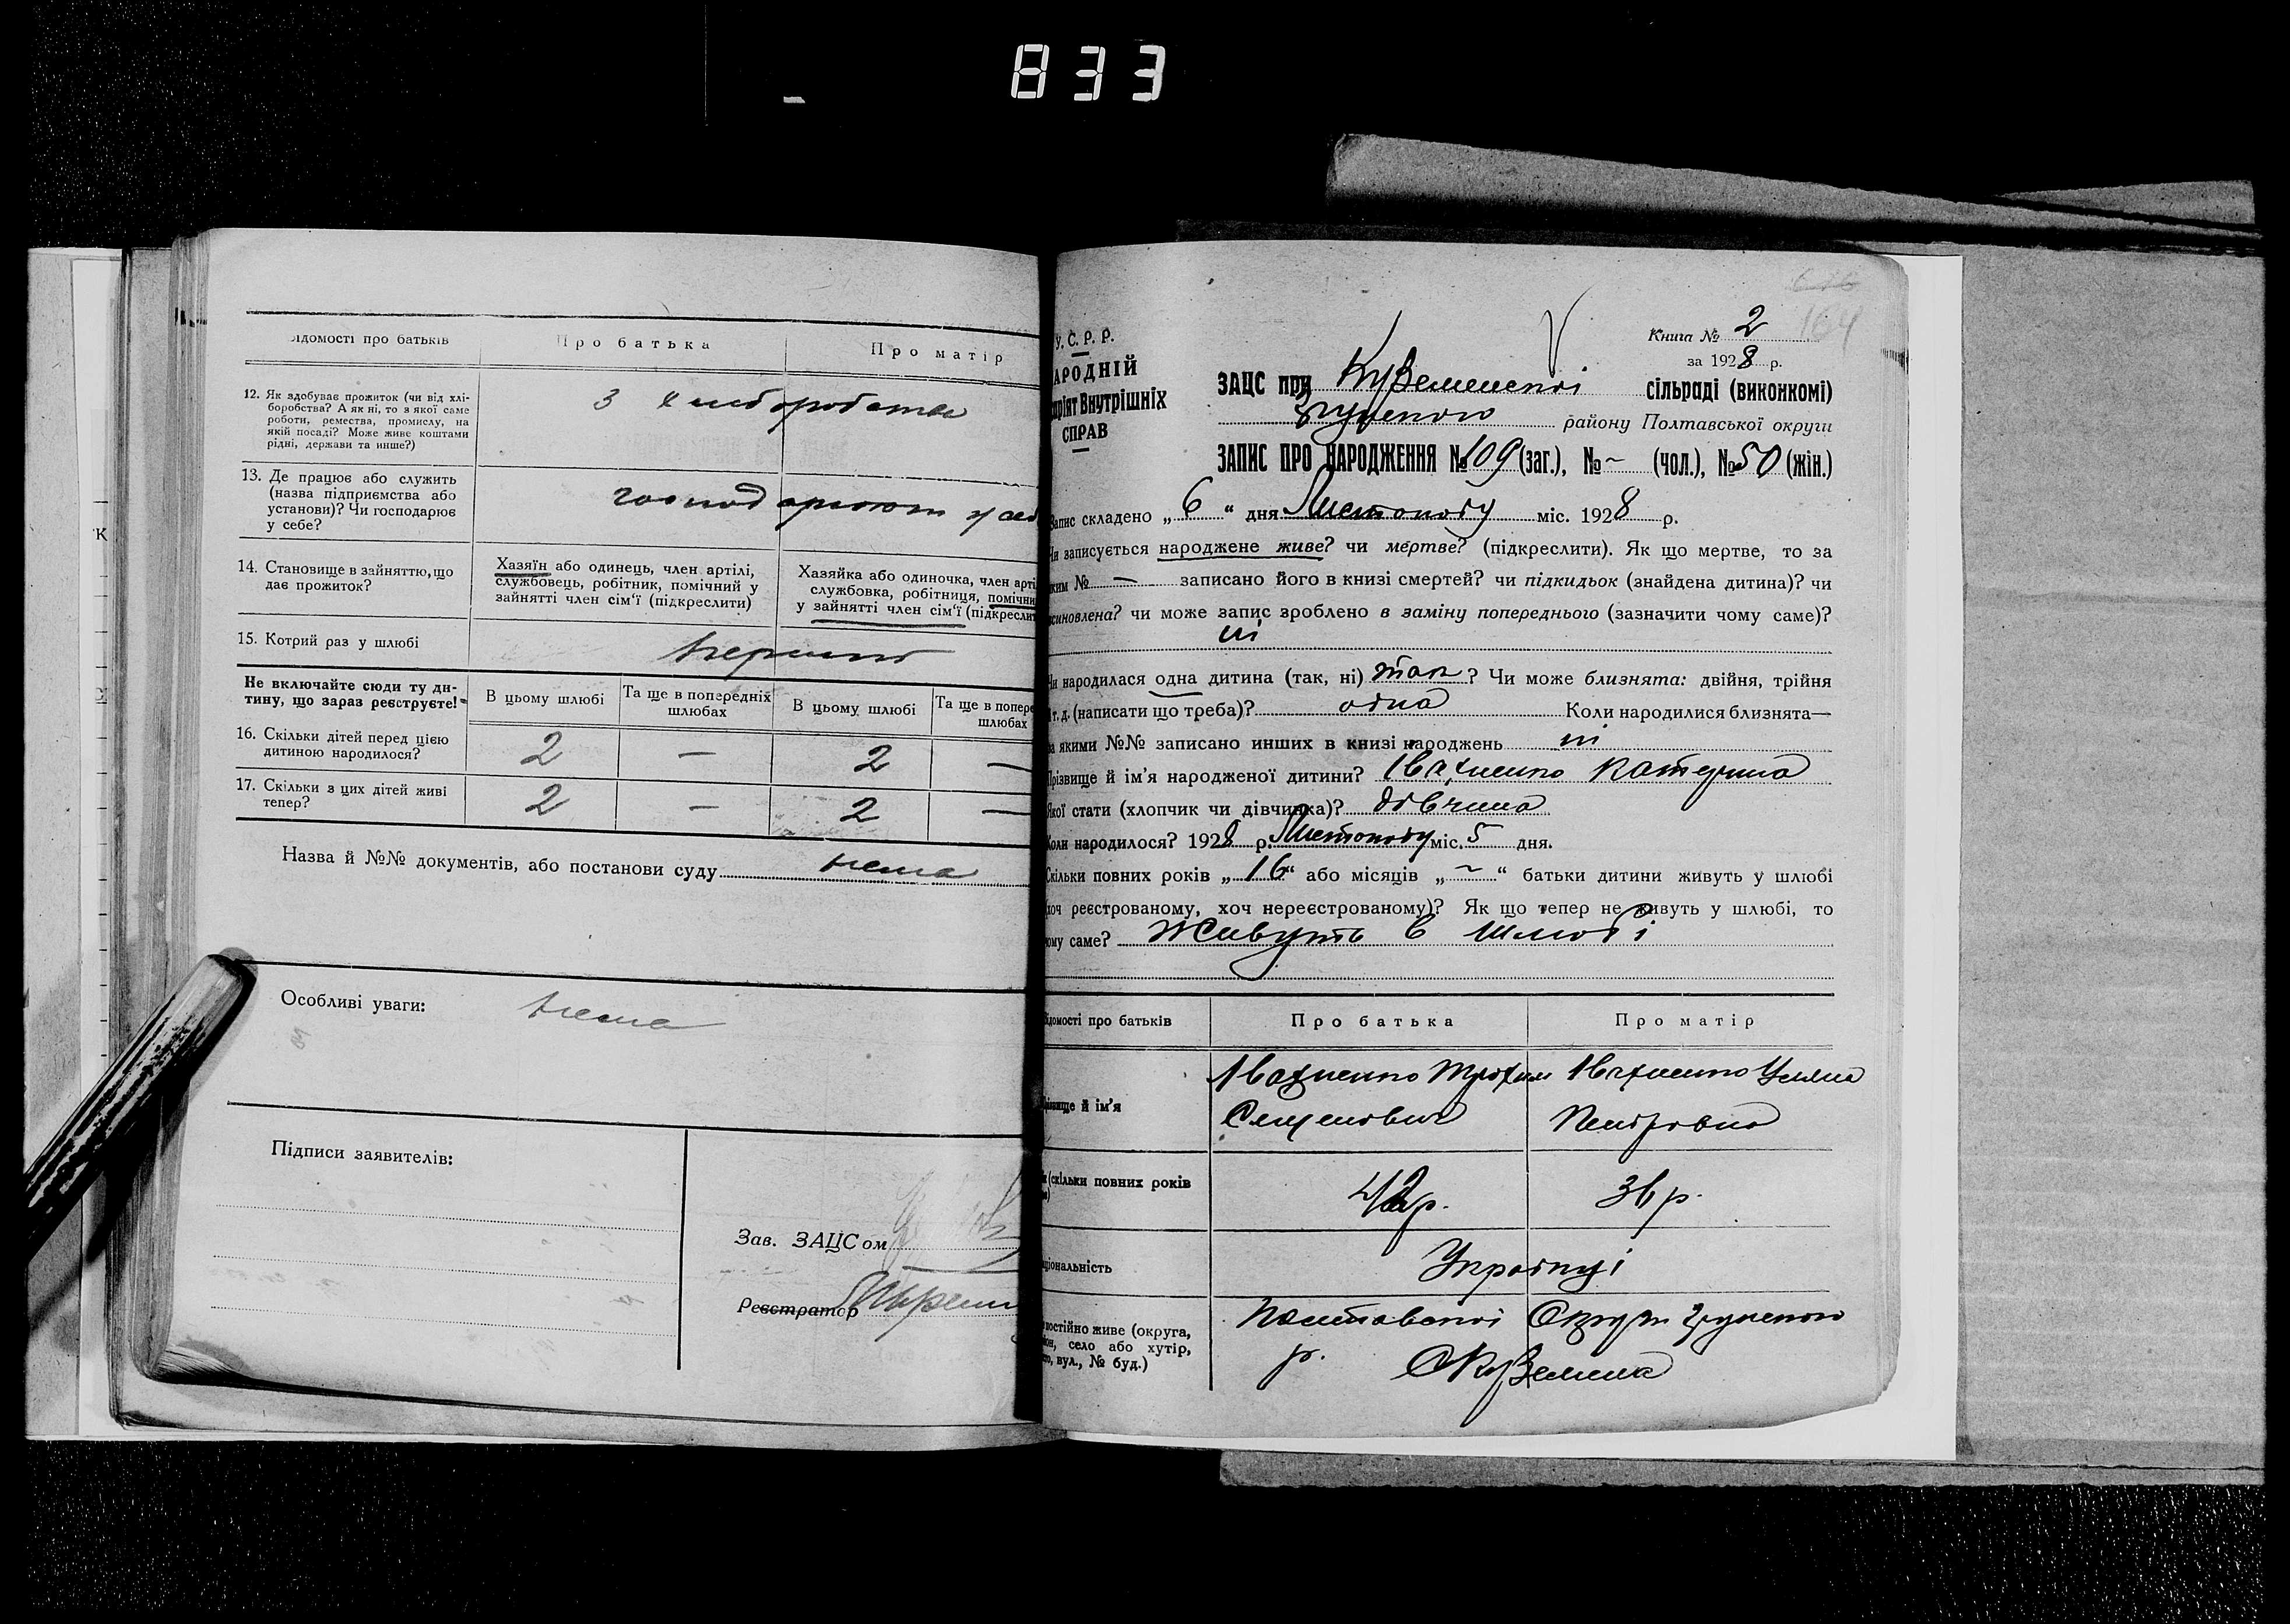 833
відомості про батьків
Про батька
Про матір
12. Як здобуває прожиток (чи від хлі-
боробства? А як ні, то з якої саме
роботи, ремества, промислу, на
якій посаді? Може живе коштами
рідні, держави та инше?)
З хліборобства
13. Де працює або служить
(назва підприємства або
установи)? Чи господарює
у себе?
господарюют у себ
14. Становище в зайняттю, що
дає прожиток?
Хазяїн або одинець, член артілі,
службовець, робітник, помічний у
зайнятті член сім'ї (підкреслити)
Хазяйка або одиночка, член арті
службовка, робітниця, помічни
у зайнятті член сім'ї (підкресли
15. Котрий раз у шлюбі
Не включайте сюди ту ди-
тину, що зараз реєструєте!
В цьому шлюбі
Та ще в попередніх
шлюбах
В цьому шлюбі
Та ще в попере
шлюбах
16. Скільки дітей перед цією
дитиною народилося?
2 — 2 —
17. Скільки з цих дітей живі
тепер?
2 — 2 —
Назва й №№ документів, або постанови суду нема
Особливі уваги: нема
Підписи заявителів:
Зав. ЗАЦСом
Реєстратор
У.С.Р.Р.
АРОДНІЙ
аріят Внутрішніх
СПРАВ
164
Книга № 2
за 1928 р.
ЗАЦС при Куземенській сільраді (виконкомі)
району Полтавської округи
ЗАПИС ПРО НАРОДЖЕННЯ № 109 (заг.), № ~ (чол.), № 50 (жін.)
Запис складено „6“ дня Листопаду міс. 1928 р.
Чи записується народжене живе? чи мертве? (підкреслити). Як що мертве, то за
яким № — записано його в книзі смертей? чи підкидьок (знайдена дитина)? чи
усиновлена? чи може запис зроблено в заміну попереднього (зазначити чому саме)?
ні
Чи народилася одна дитина (так, ні) так? Чи може близнята: двійня, трійня
і т. д. (написати що треба)? одна Коли народилися близнята—
за якими №№ записано инших в книзі народжень ні
Прізвище й ім'я народженої дитини? Івахненко Катерина
Якої стати (хлопчик чи дівчинка)? дівчина
Коли народилося? 1928 р. Листопаду міс. 5 дня.
Скільки повних років „16“ або місяців „~“ батьки дитини живуть у шлюбі
хоч реєстрованому, хоч нереєстрованому)? Як що тепер не живуть у шлюбі, то
чому саме? Живуть в шлюбі
ідомості про батьків
Про батька
Про матір
ізвище й ім'я
Івахненко Трохим
Семенович
Івахненко Уляна
Петровна
(скільки повних років
36 р.
ціональність
Українці
постійно живе (округа,
он, село або хутір,
то, вул., № буд.)
Полтавської Округи
р. С Куземина